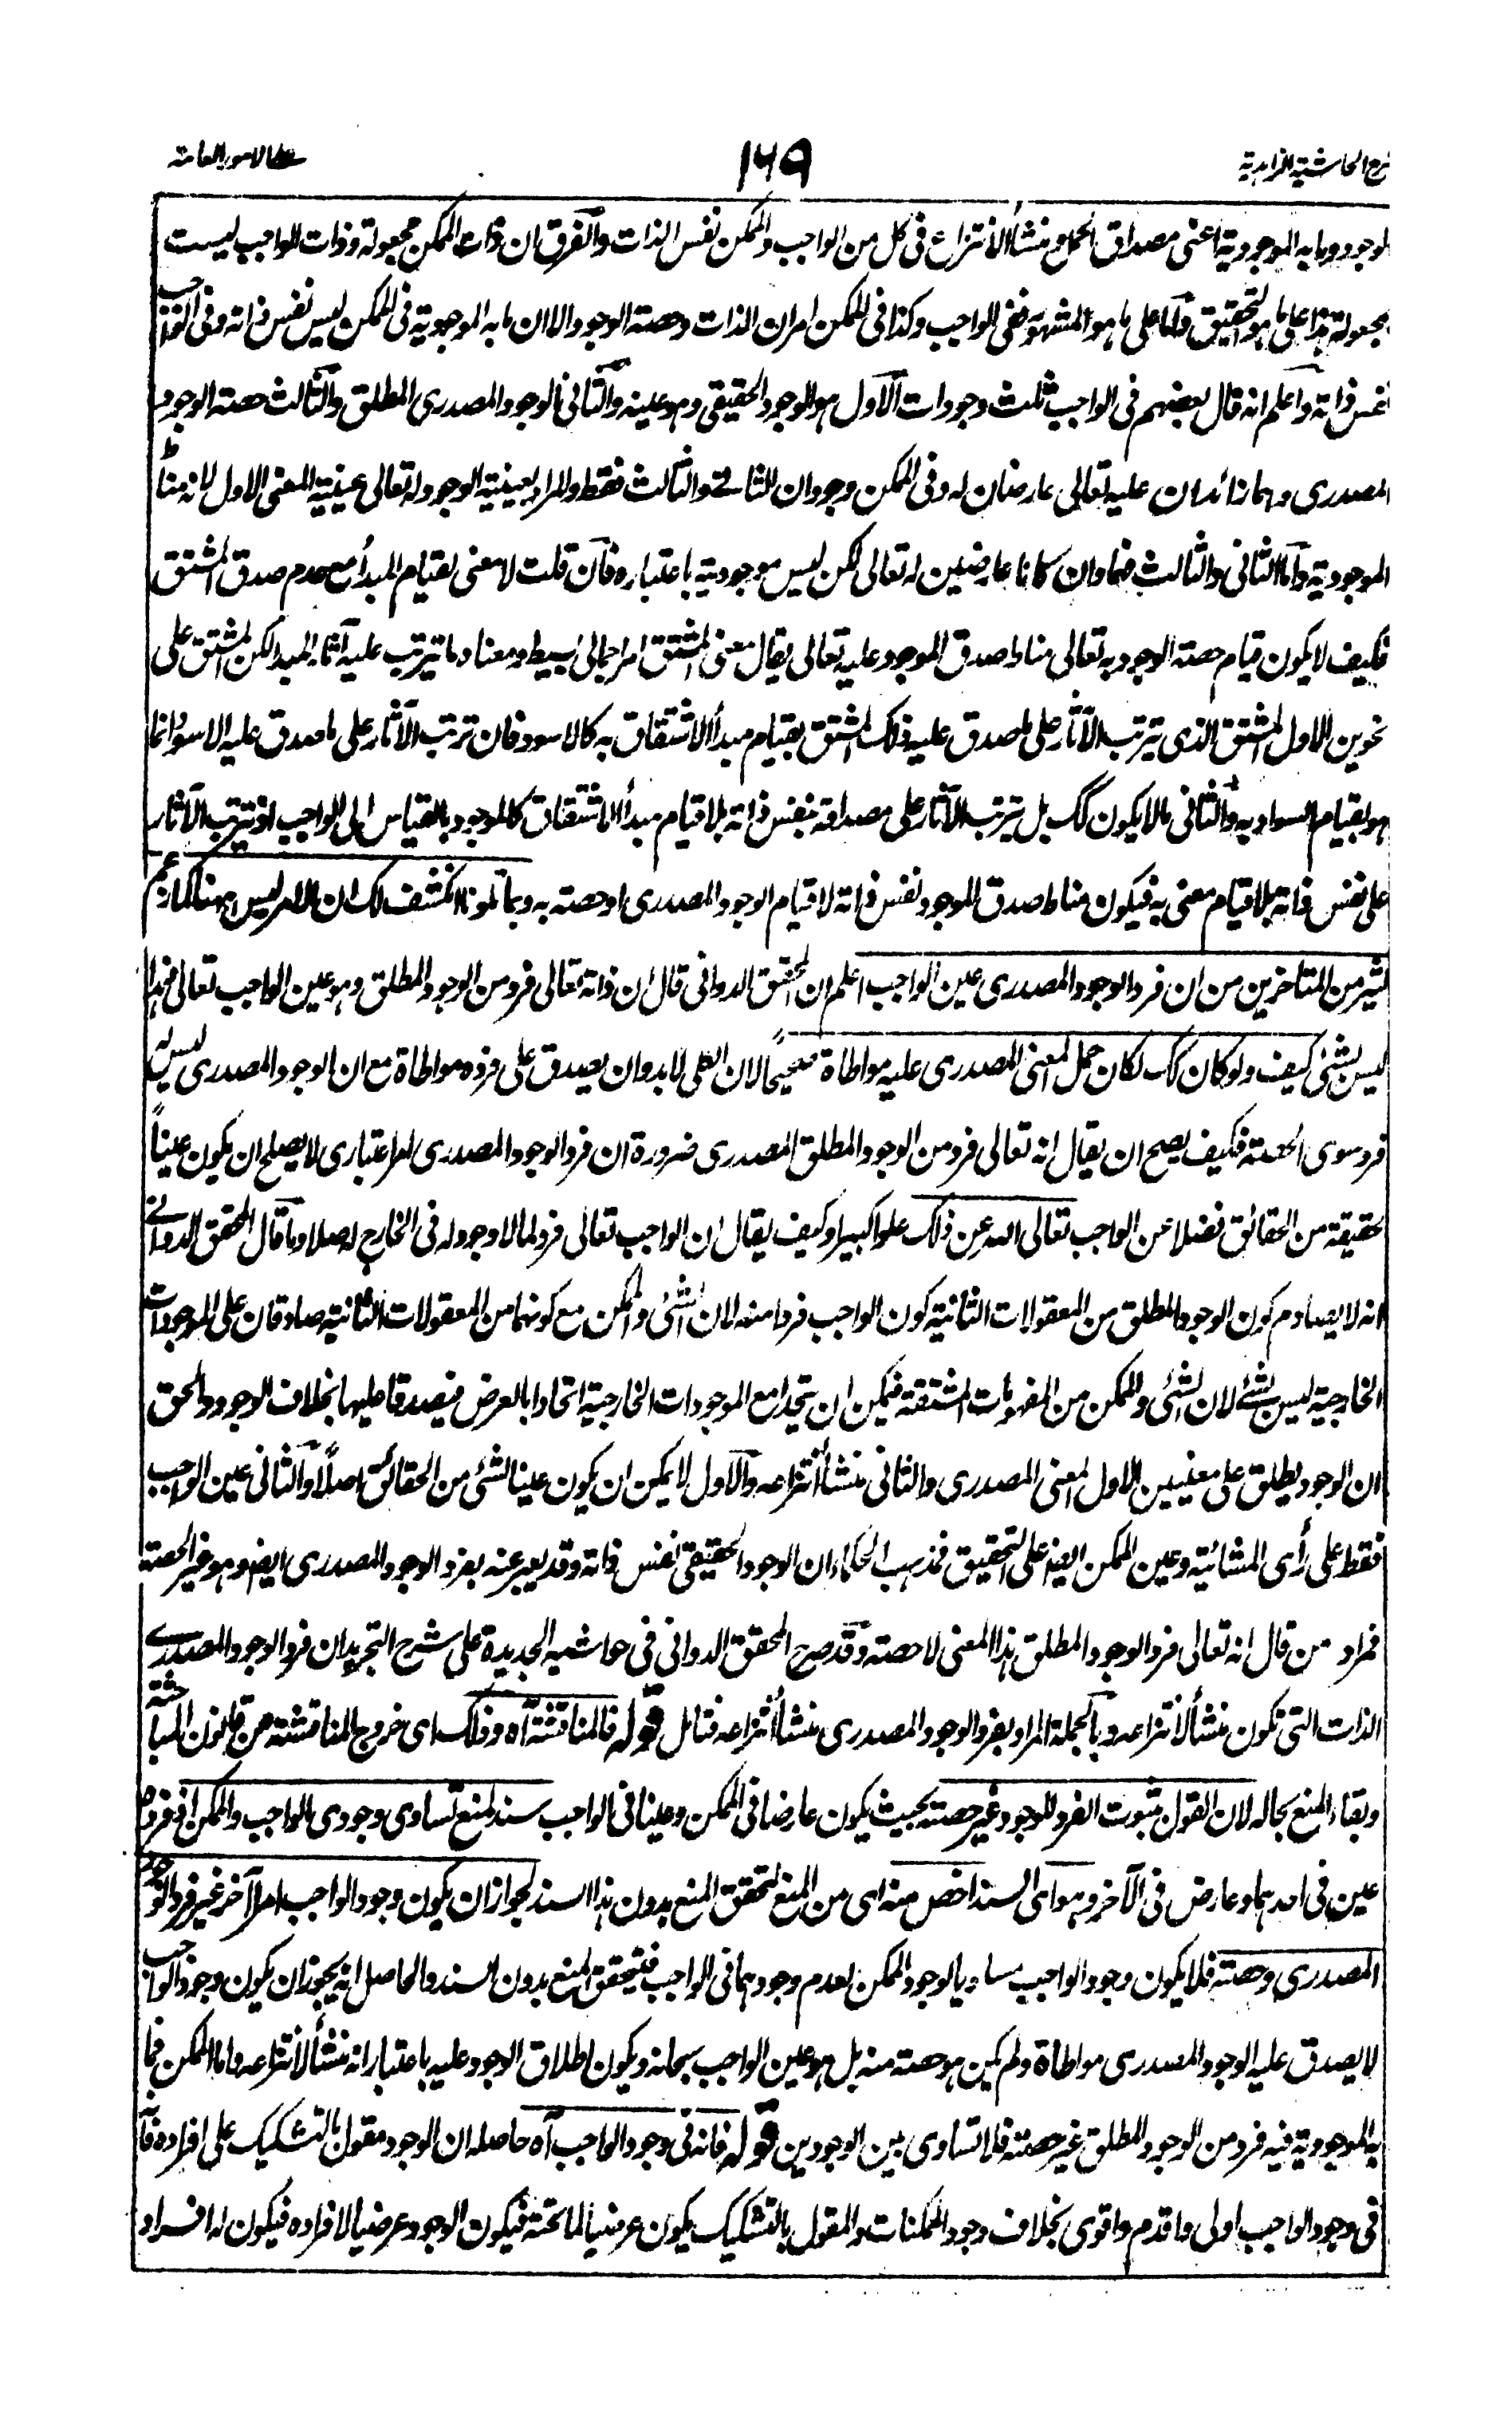 شرح الحاشية الزاهدية
١٦٩
على الامور العامة
لوجود وما به الموجودية اعنى مصداق الحمل ومنشأ الانتزاع فى كل من الواجب والممكن نفس الذات والفرق ان ذات الممكن مجعولة وذات الواجب ليست
مجعولة هذا على ما هو التحقيق واما على ما هو المشهور ففى الواجب وكذا فى الممكن امران الذات وحصة الوجود الا ان ما به الموجودية فى الممكن ليس نفس ذاته وفى الواجب
نفس ذاته واعلم انه قال بعضهم فى الواجب ثلث وجودات الاول هو الوجود الحقيقى وهو عينه والثانى الوجود المصدرى المطلق والثالث حصة الوجود
المصدرى وهما زائدان عليه تعالى عارضان له وفى الممكن وجودان الثانى والثالث فقط والمراد بعينية الوجود له تعالى عينية المعنى الاول لانه مناط
الموجودية واما الثانى والثالث فهما وان كانا عارضين له تعالى لكن ليس موجوديته باعتباره فان قلت لا معنى لقيام المبدأ مع عدم صدق المشتق
فكيف لا يكون قيام حصة الوجود به تعالى مناط صدق الموجود عليه تعالى يقال معنى المشتق امر اجمالى بسيط ومعناه ما تيرتب عليه آثار المبدا لكن المشتق على
نحوين الاول المشتق الذى تيرتب الآثار على ما صدق عليه ذلك المشتق بقيام مبدأ الاشتقاق به كالاسود فان ترتب الآثار على ما صدق عليه الاسود انما
هو بقيام السواد به والثانى ما لا يكون كك بل يترتب الآثار على مصداقه بنفس ذاته بلا قيام مبدأ الاشتقاق كالموجود بالقياس الى الواجب اذ يترتب الآثار
على نفس ذاته بلا قيام معنى به فيكون مناط صدق الموجود نفس ذاته لا قيام الوجود المصدرى او حصته به وبما تلونا انكشف لك ان الامر ليس ههنا كما زعم
كثير من المتاخرين من ان فرد الوجود المصدرى عين الواجب اعلم ان المحقق الدوانى قال ان ذاته تعالى فرد من الوجود المطلق وهو عين الواجب تعالى فهذا
ليس بشئ كيف ولو كان كك لكان حمل المعنى المصدرى عليه مواطاة صحيحا لان الكلى لا بد وان يصدق على فرده مواطاة مع ان الوجود المصدرى ليس له
فرد سوى الحصة فكيف يصح ان يقال انه تعالى فرد من الوجود المطلق المصدرى ضرورة ان فرد الوجود المصدرى امر اعتبارى لا يصلح ان يكون عيناً
لحقيقة من الحقائق فضلا عن الواجب تعالى الله عن ذلك علوا كبيرا وكيف يقال ان الواجب تعالى فرد لما لا وجود له فى الخارج اصلا وما قال المحقق الدوانى
انه لا يصادم كون الوجود المطلق من المعقولات الثانية كون الواجب فردا منه لان الشئ والممكن مع كونهما من المعقولات الثانية صادقان على الموجودات
الخارجية ليس بشئ لان الشئ والممكن من المفهومات المشتقة فيمكن ان يتحدا مع الموجودات الخارجية اتحادا بالعرض فيصدقا عليها بخلاف الوجود والحق
ان الوجود يطلق على معنيين الاول المعنى المصدرى والثانى منشأ انتزاعه والاول لا يمكن ان يكون عينا لشئ من الحقائق اصلاً والثانى عين الواجب
فقط على رأى المشائية وعين الممكن ايضا على التحقيق فمذهب الحكماء ان الوجود الحقيقى نفس ذاته وقد يعبر عنه بفرد الوجود المصدرى ايضا وهو غير الحصة
فمراد من قال انه تعالى فرد الوجود المطلق هذا المعنى لا حصته وقد صرح المحقق الدوانى فى حواشيه الجديدة على شرح التجريد ان فرد الوجود المصدرى
الذات التى تكون منشأ لانتزاعه وبالجملة المراد بفرد الوجود المصدرى منشأ انتزاعه فتامل قوله فالمناقشة آه وذلك اى خروج المناقشة من قانون المباحثة
وبقاء المنع بحاله لان القول بثبوت الفرد للوجود غير حصته بحيث يكون عارضا فى الممكن وعينا فى الواجب سند لمنع تساوى وجودى الواجب والممكن اى فرد هو
عين فى احدهما وعارض فى الآخر وهو اى السند اخص منه اى من المنع لتحقق المنع بدون هذا السند لجواز ان يكون وجود الواجب امرا آخر غير فرد الوجود
المصدرى وحصته فلا يكون وجود الواجب مساويا لوجود الممكن لعدم وجودهما فى الواجب فيتحقق المنع بدون السند والحاصل انه يجوز ان يكون وجود الواجب
لا يصدق عليه الوجود المصدرى مواطاة ولم يكن هو حصته منه بل هو عين الواجب سبحانه ويكون اطلاق الوجود عليه باعتبار انه منشأ لانتزاعه واما الممكن فما
به الموجودية فيه فرد من الوجود المطلق غير حصته فلا تساوى بين الوجودين قوله فانه فى وجود الواجب آه حاصله ان الوجود مقول بالتشكيك على افراده فانه
فى وجود الواجب اولى واقدم واقوى بخلاف وجود الممكنات والمقول بالتشكيك يكون عرضيا لما تحته فيكون الوجود عرضيا لافراده فيكون له افراد